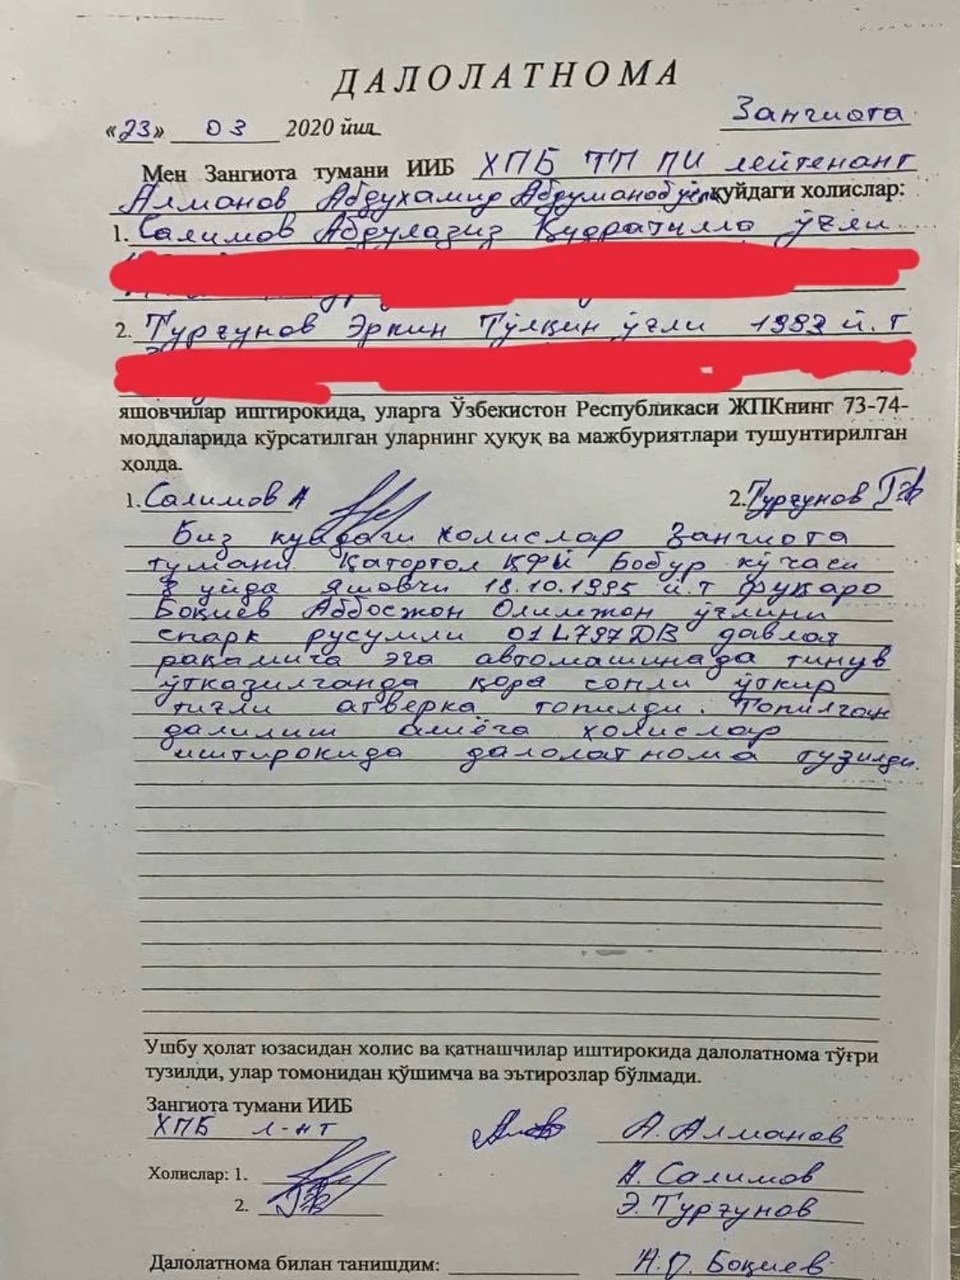 ДАЛОЛАТНОМА
«23» 03 2020 йил Зангиота
Мен Зангиота тумани ИИБ ХПБ ТП ПИ лейтенант
Алманов Абдухамид қуйдаги холислар:
1. Салимов Абдулазиз Қудратилла ўғли
2. Турғунов Эркин Тўлқин ўғли 1993 й.т
яшовчилар иштирокида, уларга Ўзбекистон Республикаси ЖПКнинг 73-74-
моддаларида кўрсатилган уларнинг ҳуқуқ ва мажбуриятлари тушунтирилган
ҳолда.
1. Салимов А 2. Турғунов
Биз куйдаги холислар Зангиота
тумани Қатортол ҚФЙ Бобур кўчаси
уйда яшовчи 18.10.1995 й.т фуқаро
Боқиев Аббосжон Олимжон ўғлини
спарк русумли 01L797DB давлат
рақамига эга автомашинада тинув
ўтказилганда қора сопли ўткир
тиғли атверка топилди. Топилган
далилиш ашёга холислар
иштирокида далолатнома тузилди.
Ушбу ҳолат юзасидан холис ва қатнашчилар иштирокида далолатнома тўғри
тузилди, улар томонидан қўшимча ва эътирозлар бўлмади.
Зангиота тумани ИИБ
ХПБ л-нт А. Алманов
Холислар: 1. А. Салимов
2. Э. Турғунов
Далолатнома билан танишдим: Боқиев